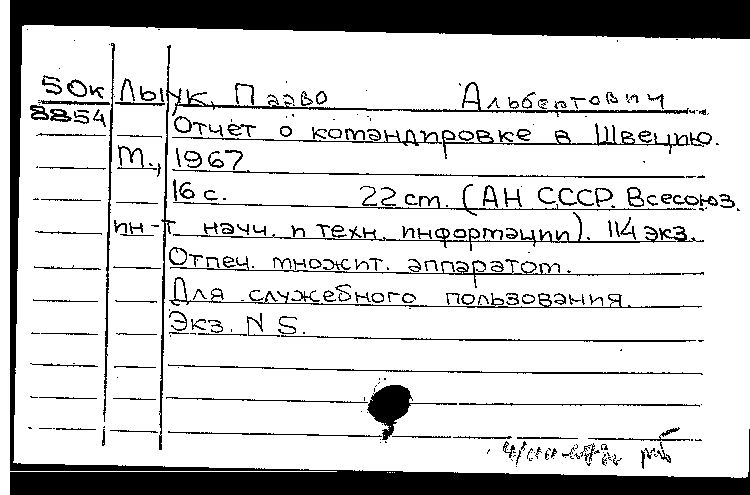 50к Лыук, Пааво Альбертович
8854 Отчет о командировке в Швецию.
М., 1967.
16 с. 22 см. (АН СССР. Всесоюз.
ин-т научн. и техн. информации). 114 экз.
Отпеч. множит. аппаратом.
Для служебного пользования.
Экз. N 5.